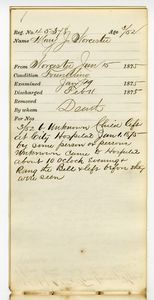 Reg. No.
Age 3/52
Henry J. Worcester
From Worcester Jan 15 1875
Condition Foundling
Examined Jan 1875
Discharged Feb 1875
Removed
By whom Dead
For No
3/52 Unknown Child left
at City Hospital Jan 1, 1875
by some person or persons
Unknown Came to Hospital
about 10 Oclock Evening &
Rang the Bell & left before they
were seen